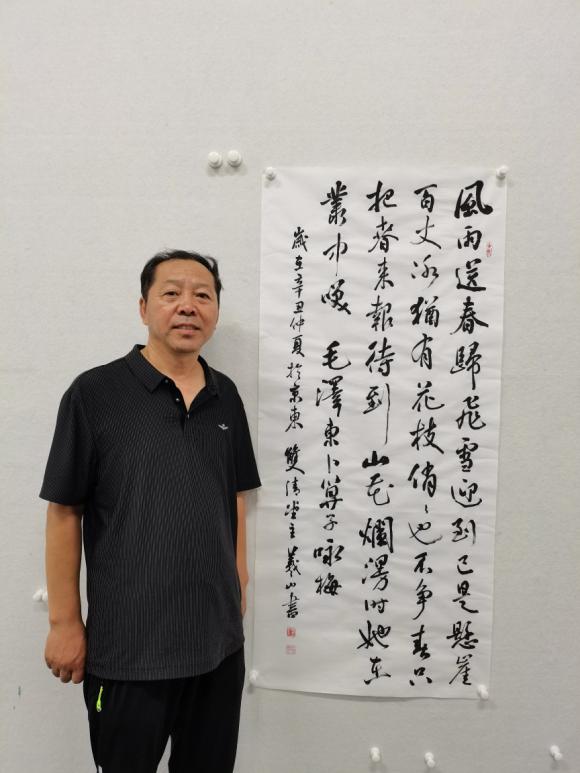 風雨送春歸飛雪迎到已是懸崖
百丈冰猶有花枝俏〻也不争春只
把春来報待到山花爛漫时她在
叢中咲 毛澤東卜算子咏梅
歲在辛丑仲夏於京東 雙清堂主義山書